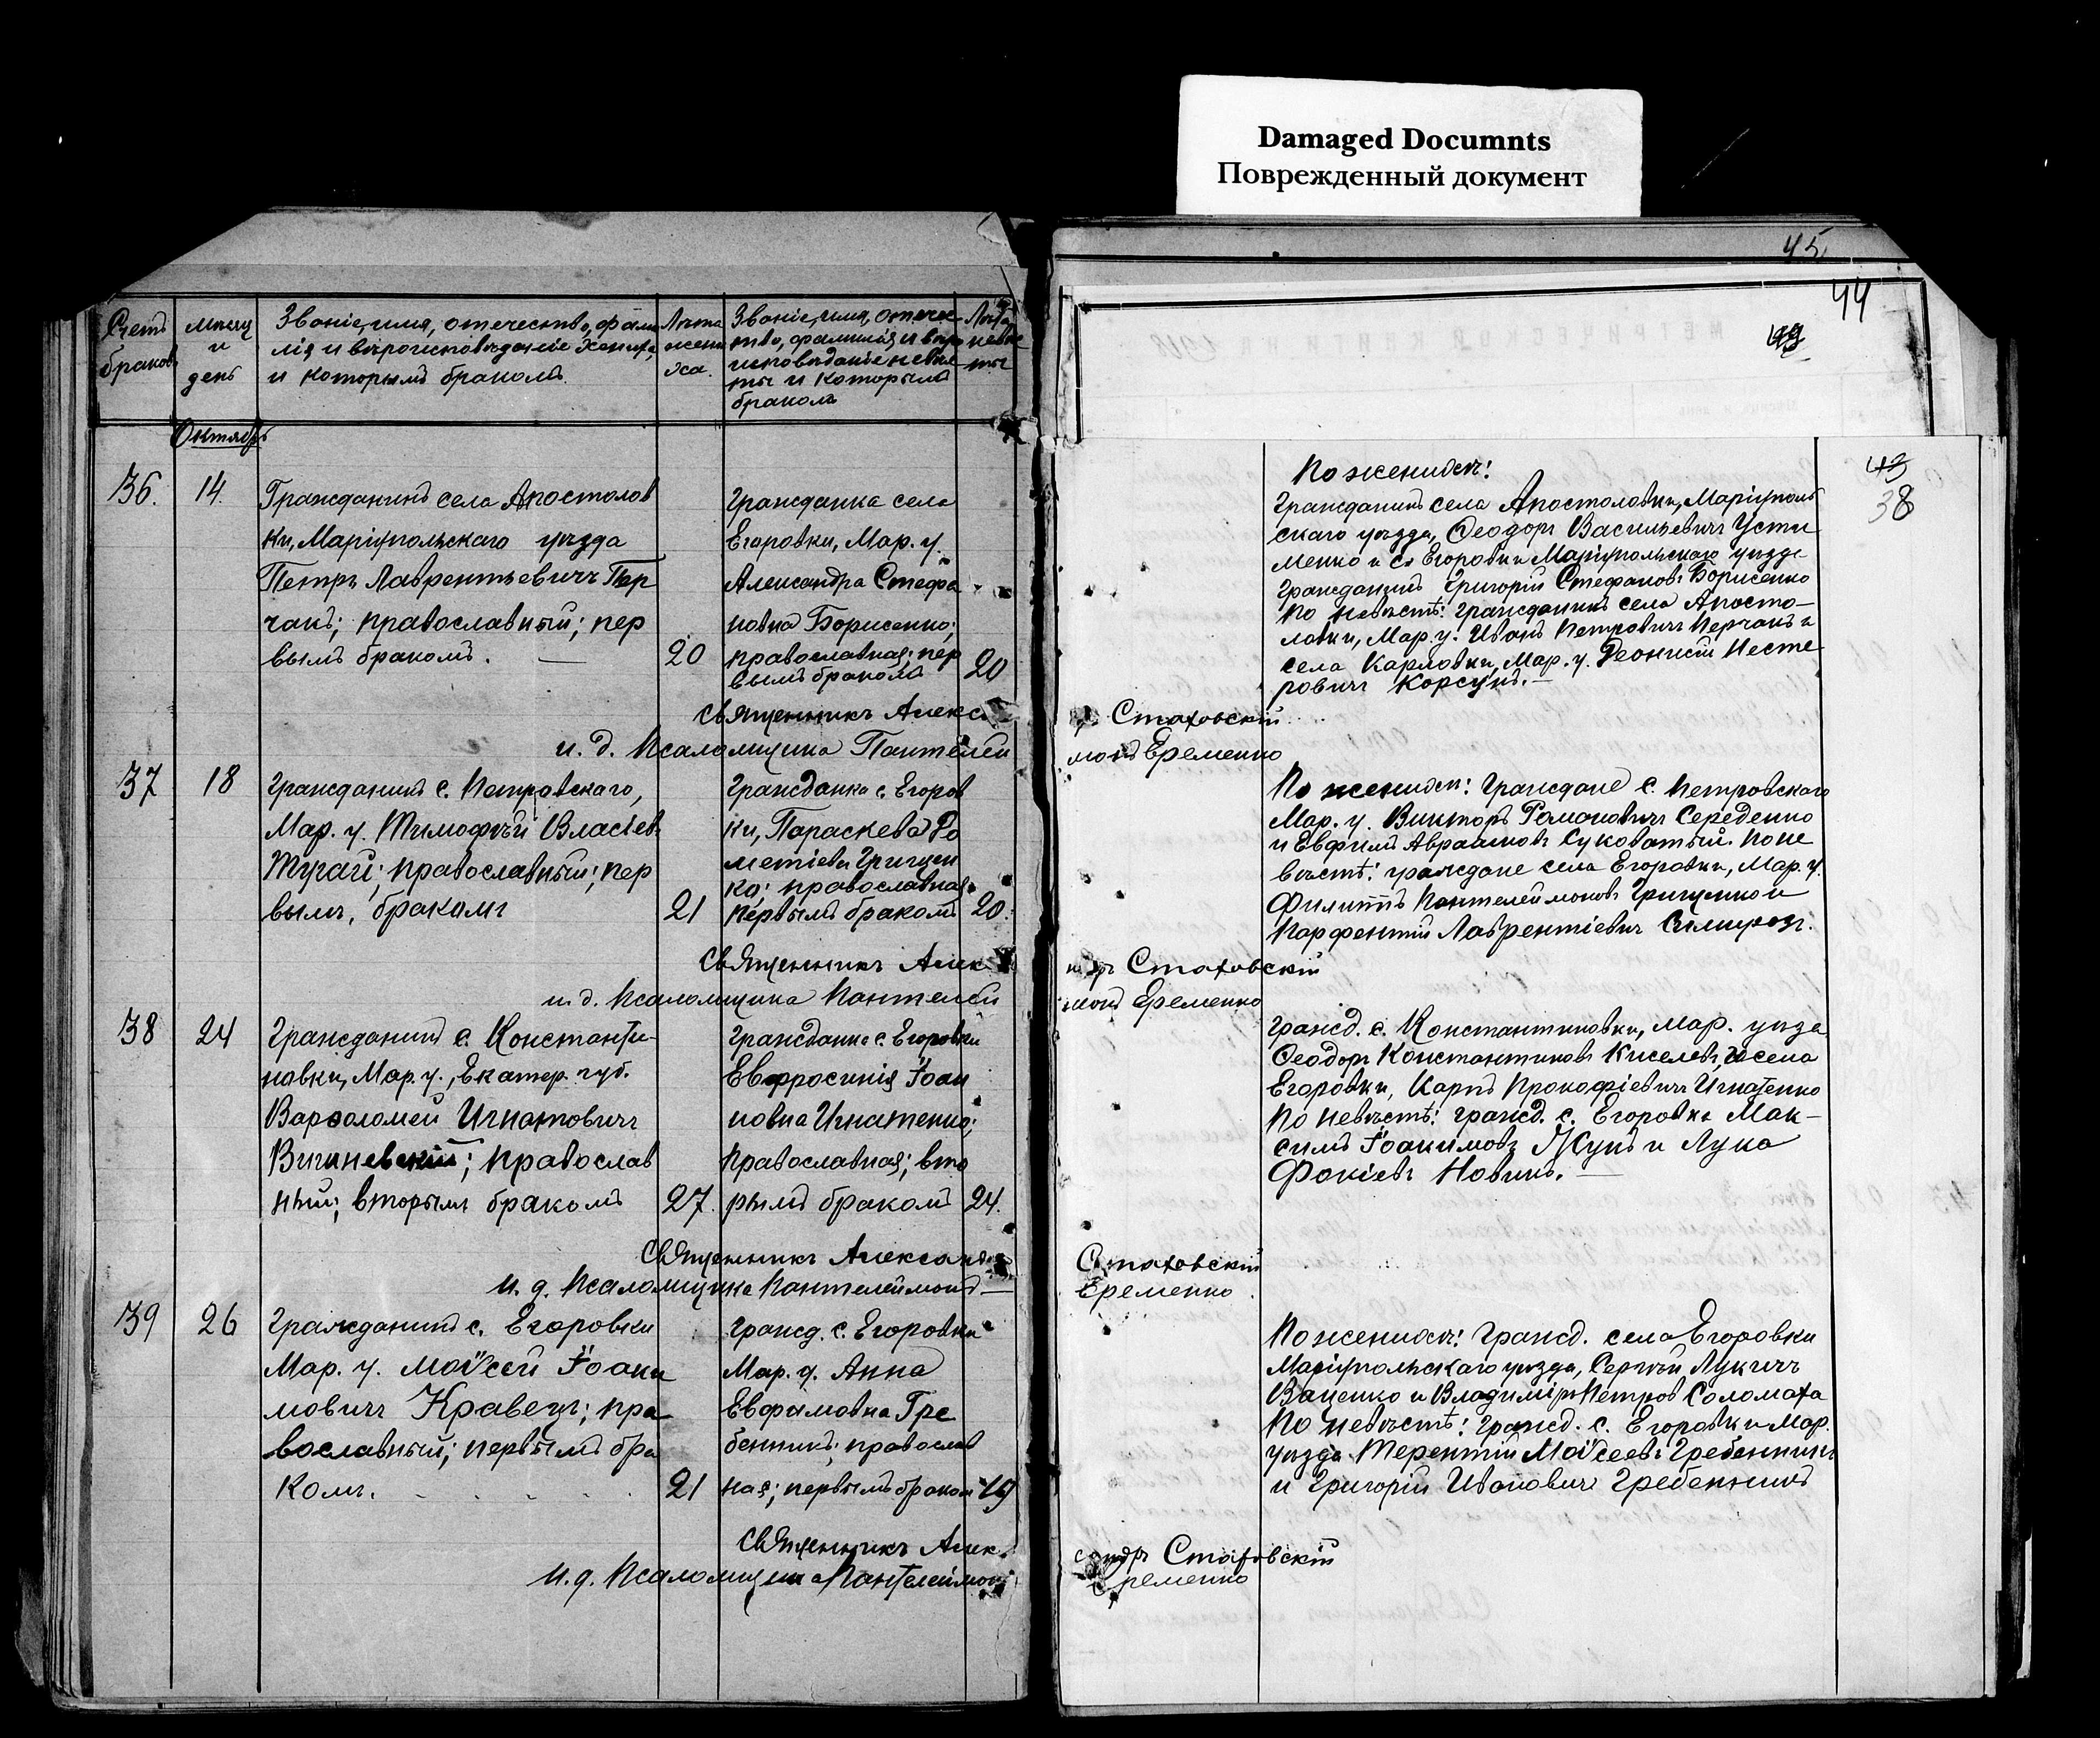 Damaged Documnts
Поврежденный документ
45
44
Счетъ браковъ
Мѣсяц и день
Званіе, имя, отечество, фами
лія и вѣроисповѣданіе жениха,
и которымъ бракомъ.
Лѣта
жени
ха.
Званіе, имя, отече
тво, фамилія и вѣро
исповѣданіе невѣс
ты и которымъ
бракомъ
Лѣта
невѣс
ты
Октябрь
36.
14.
Гражданинъ села Апостолов
ки, Маріупольскаго уѣзда
Петръ Лаврентьевичъ Пер
чакъ; православный; пер
вымъ бракомъ. —
20
Гражданка села
Егоровки, Мар. у.
Александра Стефа
новна Борисенко;
православная; пер
вымъ бракомъ
20
Священникъ Алекс
и. д. Псаломщика Пантелей
37
18
Гражданинъ с. Петровскаго,
Мар. у. Тимофѣй Власіев
Тугай; православный; пер
вымъ, бракомъ
21
Гражданка с. Егоров
ки, Параскева До
метіева Грищен
ко; православная
первымъ бракомъ
20.
Священникъ Алек
и. д. Псаломщика Пантелей
38
24
Гражданинъ с. Константи-
новки, Мар. у., Екатер. губ.
Варѳоломей Игнатовичъ
Вишневскій; православ
ный; вторымъ бракомъ
27.
Гражданка с. Егоровки
Евфросинія Іоан
новна Игнатенко;
православная; вто
рымъ бракомъ
24.
Священникъ Александ
и. д. Псаломщика Пантелеймонъ —
39
26
Гражданинъ с. Егоровки
Мар. у. Моѵсей Іоаки
мовичъ Кравецъ; пра
вославный; первымъ бра
комъ.
21
Гражд. с. Егоровки
Мар. у. Анна
Евфимовна Гре
бенникъ; православ
ная; первымъ браком
19
Священникъ Алек.
и. д. Псаломщика Пантелеймон
43
38
По женихѣ:
Гражданинъ села Апостоловки, Маріуполь
скаго уѣзда, Ѳеодоръ Васильевичъ Усти
менко и с. Егоровки Маріупольскаго уѣзда
Гражданинъ Григорій Стефановъ Борисенко
По невѣстѣ: гражданинъ села Апосто—
ловки, Мар. у. Иванъ Петровичъ Перчакъ и
села Карловки, Мар. у. Деонисій Несте
ровичъ Корсунъ. —
ръ Стаховскій
монъ Еременко
По женихѣ: Граждане с. Петровскаго
Мар. у. Викторъ Романовичъ Середенко
и Евфимій Авраамовъ Суковатый. По не
вѣстѣ: граждане села Егоровки, Мар. у.
Филиппъ Пантелеймоновъ Грищенко и
Парфентій Лаврентіевичъ
ндръ Стаховскій
монъ Еременко
Гражд. с. Константиновки, Мар. уѣзда
Ѳеодоръ Константиновъ Киселевъ, и села
Егоровки, Карпъ Прокофіевичъ Игнатенко
По невѣстѣ: гражд. с. Егоровки Мак—
симъ Іоакимовъ Жукъ и Лука
Фокіевъ Новикъ. —
Стаховскій
Еременко
По женихѣ: Гражд. села Егоровки
Маріупольскаго уѣзда, Сергѣй Лукичъ
Ваценко и Владиміръ Петровъ Соломаха
По невѣстѣ: Гражд. с. Егоровки Мар.
уѣзда Терентій Моѵсеевъ Гребенникъ
и Григорій Ивановичъ Гребенникъ
сандръ Стаховскій
Еременко